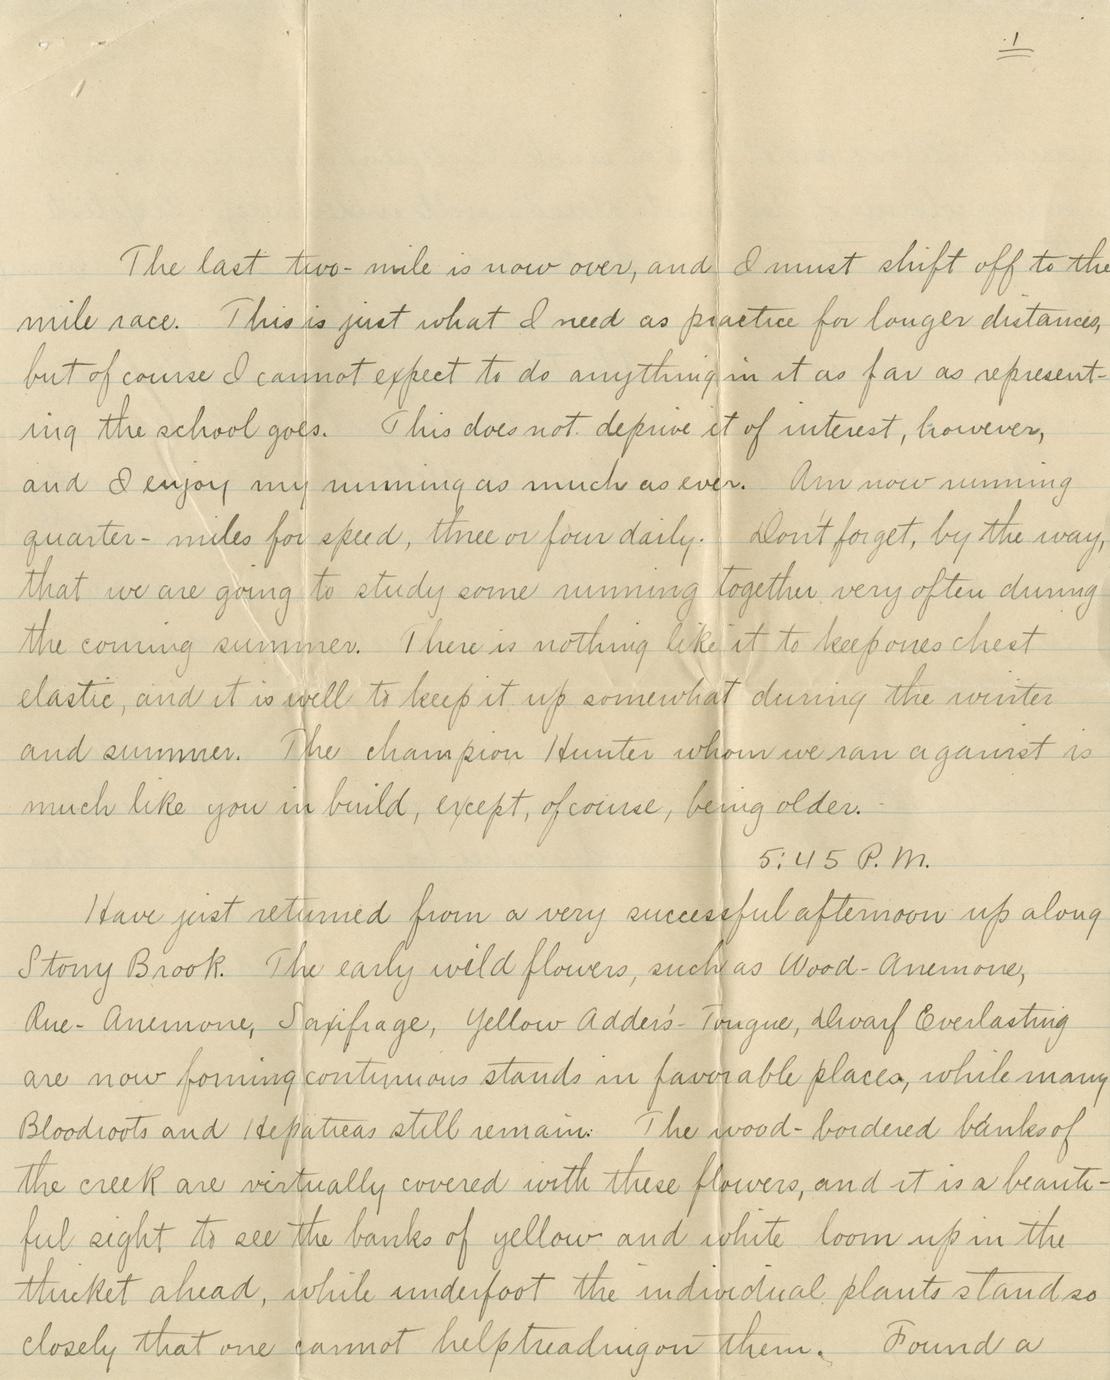 1
The last two-mile is now over, and I must shift off to the
mile race. This is just what I need as practice for longer distances,
but of course I cannot expect to do anything in it as far as represent-
ing the school goes. This does not deprive it of interest, however,
and I enjoy my running as much as ever. Am now running
quarter-miles for speed, three or four daily. Don't forget, by the way,
that we are going to study some running together very often during
the coming summer. There is nothing like it to keep ones chest
elastic, and it is well to keep it up somewhat during the winter
and summer. The champion Hunter whom we ran aganist is
much like you in build, except, of course, being older. -
5:45 P.M.
Have just returned from a very successful afternoon up along
Stony Brook. The early wild flowers, such as Wood-Anemone,
Rue-Anemone, Saxifrage, Yellow Adder's-Tongue, Dwarf Everlasting
are now forming continuous stands in favorable places, while many
Bloodroots and Hepaticas still remain. The wood-bordered banks of
the creek are virtually covered with these flowers, and it is a beauti-
ful sight to see the banks of yellow and white loom up in the
thicket ahead, while underfoot the individual plants stand so
closely that one cannot help treading on them. Found a